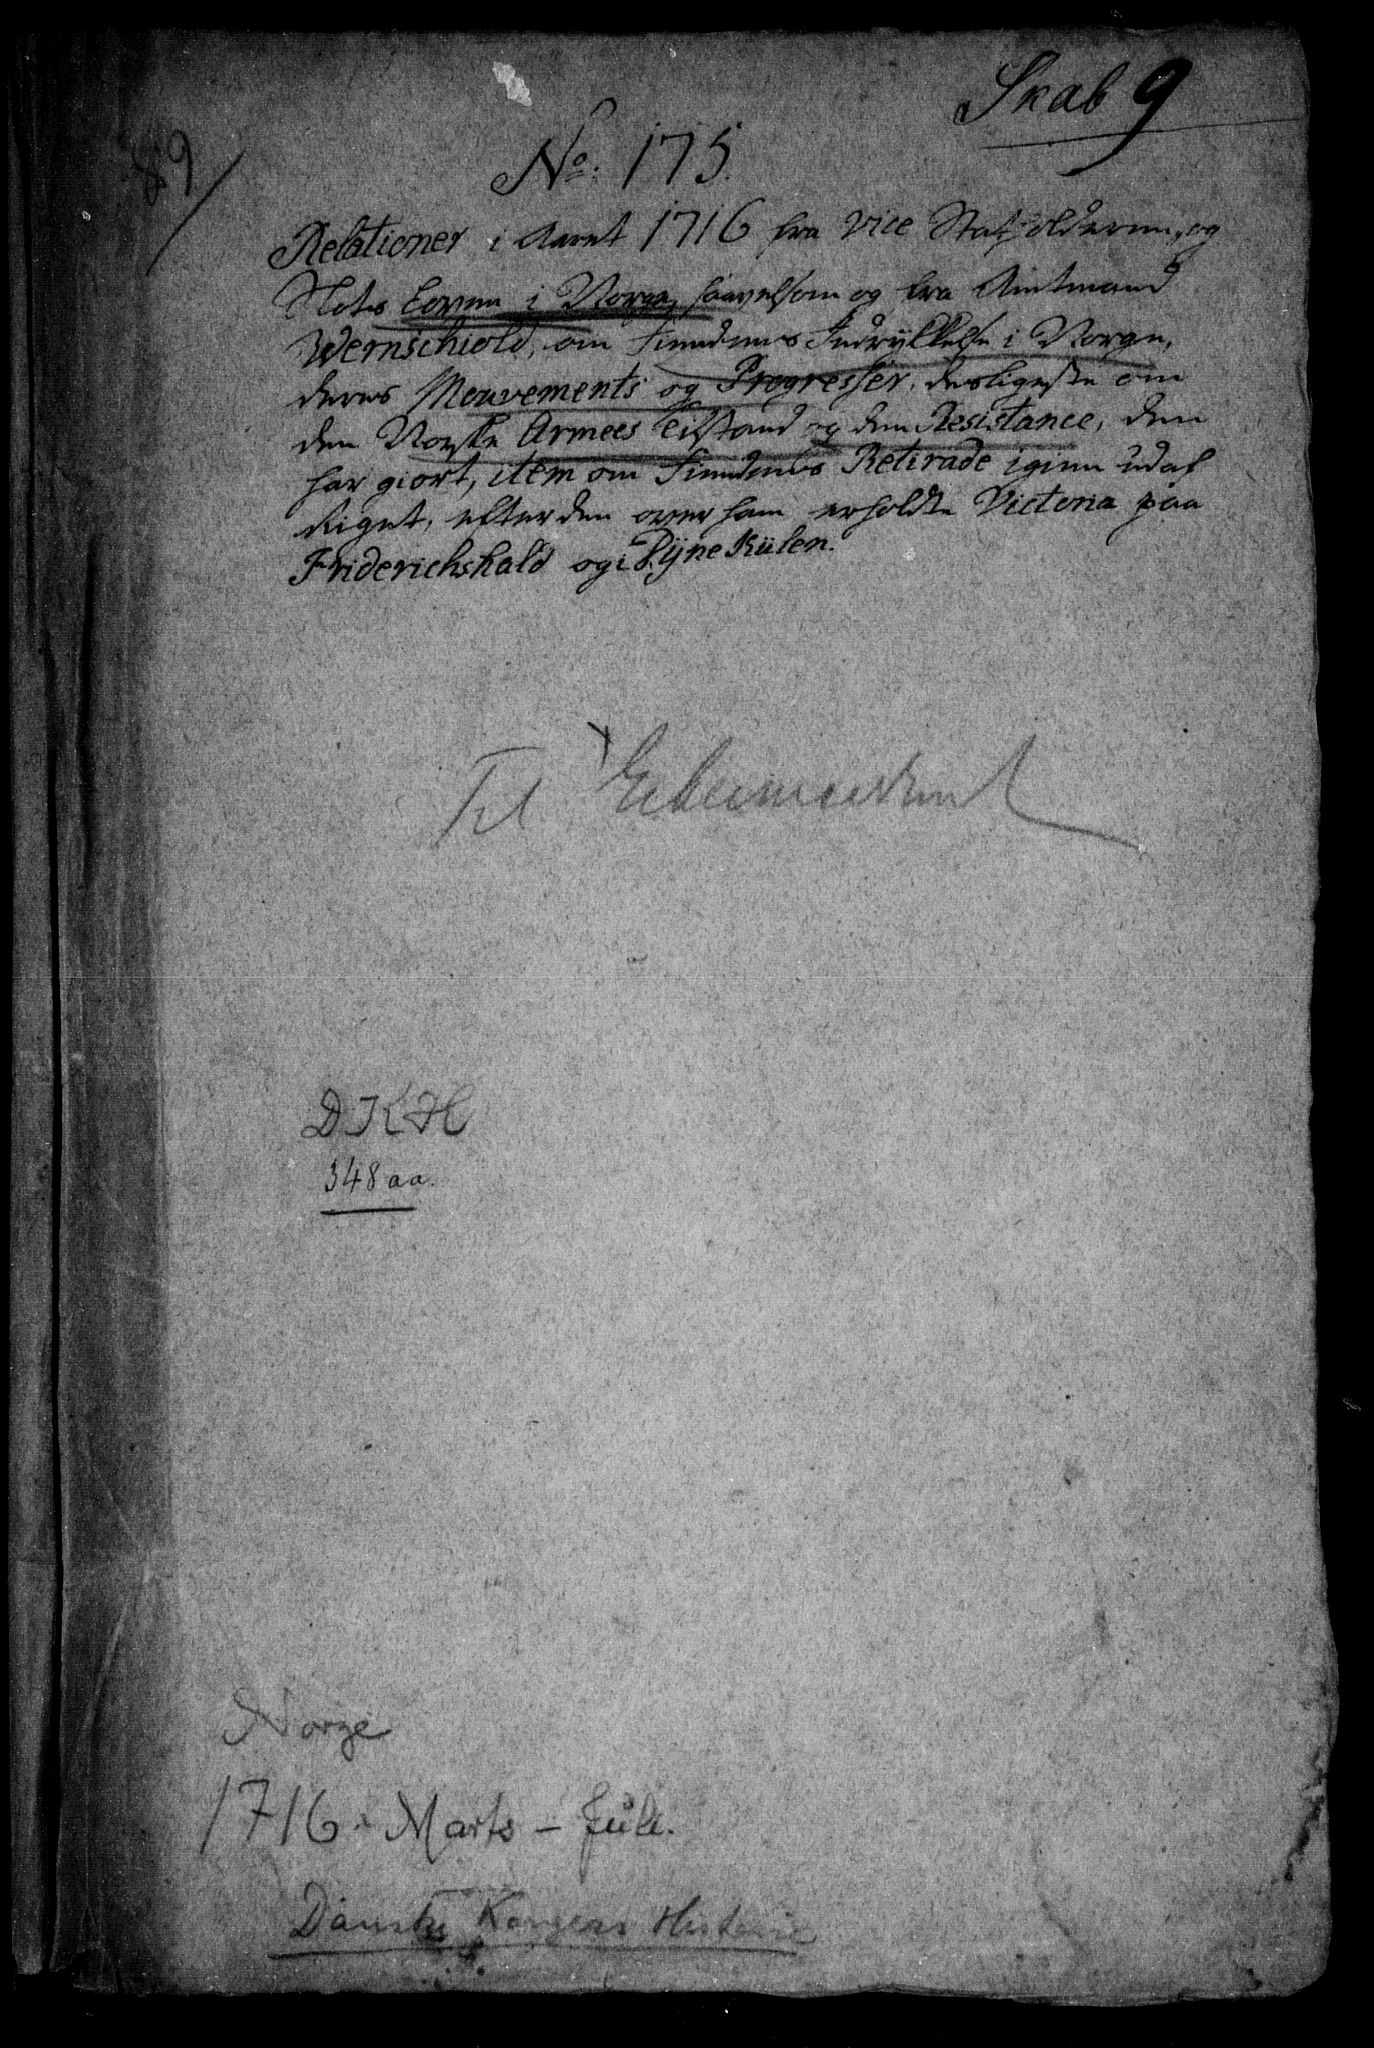 Skab 9
89
No: 175.
Relationer i Aaret 1716 fra Vice Statholderne, og
Slots Loven i Norge, saavelsom og fra Amtmand
Wernschiold, om Fiendens Indrykkelse i Norge,
deres Mouvements og Progresser, desligeste om
den Norske Armees Tilstand og den Resistance, den
har giort, item om Fiendens Retirade igien udaf
Riget, efter den over ham erholdte Victoria paa
Friderichshald og i Dyne Külen.
Til
D K H
348 aa.
Norge
1716. Marts – Juli.
Danske Kongers Historie